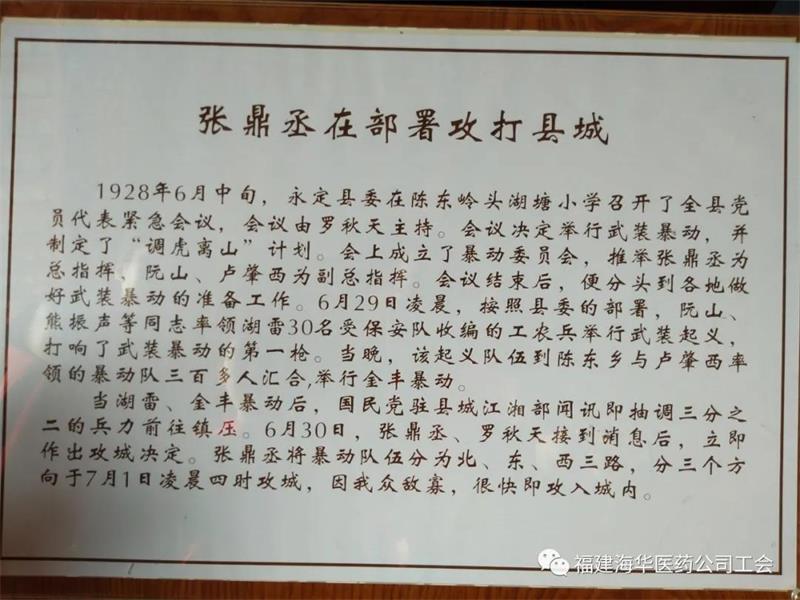 张鼎丞在部署攻打县城
1928年6月中旬，永定县委在陈东岭头湖塘小学召开了全县党
员代表紧急会议，会议由罗秋天主持。会议决定举行武装暴动，并
制定了“调虎离山”计划。会上成立了暴动委员会，推举张鼎丞为
总指挥、阮山、卢肇西为副总指挥。会议结束后，便分头到各地做
好武装暴动的准备工作。6月29日凌晨，按照县委的部署，阮山、
熊振声等同志率领湖雷30名受保安队收编的工农兵举行武装起义，
打响了武装暴动的第一枪。当晚，该起义队伍到陈东乡与卢肇西率
领的暴动队三百多人汇合,举行金丰暴动。
当湖雷、金丰暴动后，国民党驻县城江湘部闻讯即抽调三分之
二的兵力前往镇压。6月30日，张鼎丞、罗秋天接到消息后，立即
作出攻城决定。张鼎丞将暴动队伍分为北、东、西三路，分三个方
向于7月1日凌晨四时攻城，因我众敌寡，很快即攻入城内。
福建海华医药公司工会